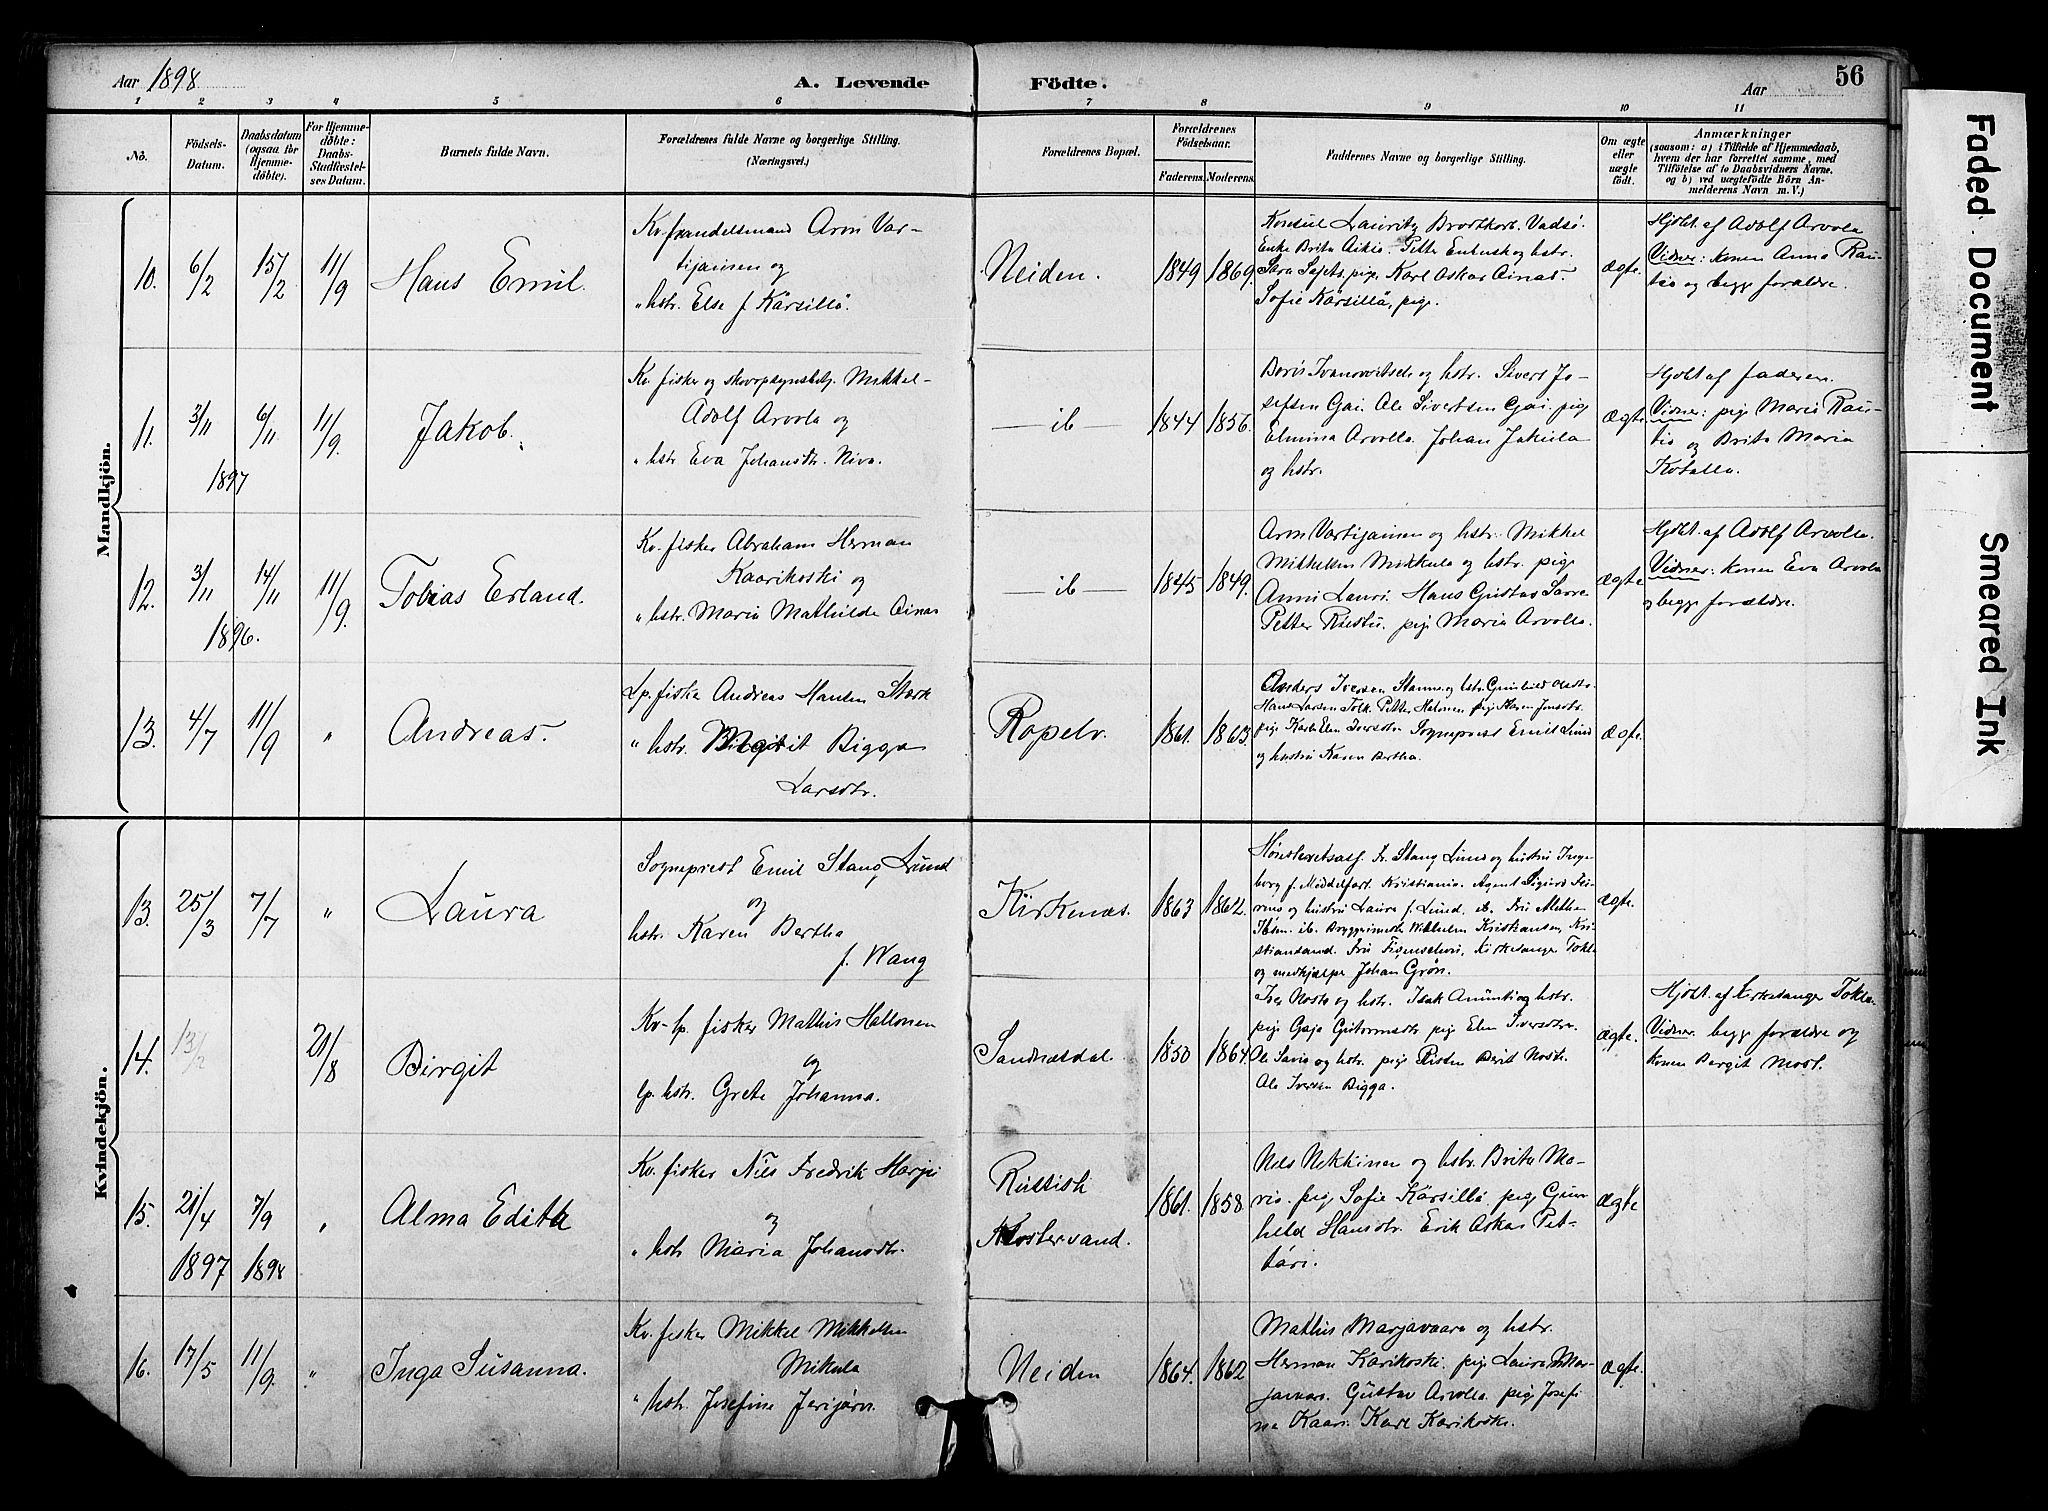 Aar 1898
A. Levende
Födte.
Aar
56
1 2 3 4 5 6 7 8 9 10 11
No.
Födsels-
Datum.
Daabsdatum
(ogsaa for
Hjemme-
döbte).
For Hjemme-
döbte:
Daabs-
Stadfæstel-
ses Datum.
Barnets fulde Navn.
Forældrenes fulde Navne og borgerlige Stilling.
(Næringsvei.)
Forældrenes Bopæl.
Forældrenes
Födselsaar.
Faderens.
Moderens.
Faddernes Navne og borgerlige Stilling.
Om ægte
eller
uægte
födt.
Anmærkninger
(saasom: a) i Tilfælde af Hjemmedaab,
hvem der har forrettet samme, med
Tilföielse af to Daabsvidners Navne.
og b) ved uægtefödte Börn An-
melderens Navn m. V.)
Mandkjön.
10. 6/2 15/2 11/9
Hans Emil.
Aron Var-
tijainen og
" hstr. Else f. Karsillö.
Neiden.
1849 1869.
Konsul Lauritz Brodtkorb. Vadsö.
Enke Brita Aikio.
pige. Karl Oskar Ainas
Sofie Karsillö, pige.
ægte.
Hjdbt. af Adolf Arvola
Vidner: konen Anna Rau-
tio og begge forældre.
11. 3/11 6/11 11/9
1897
Jakob.
Kv. fisker og skovopsynsbetj. Mikkel
Adolf Arvola og
" hstr. Eva Johansdtr. Niva.
— ib —
1844 1856.
Boris Ivanowitsch og hstr. Sivert Jo-
sefsen Gai. Ole Sivertsen Gai. pige
Elmina Arvolla. Johan Jakula
og hstr.
ægte.
Hjdbt af faderen.
Vidner: pige Maria Rau-
tio og Brita Maria
Kotalla.
12. 3/11 14/11 11/9
1896.
Tobias Erland.
Kv. fisker Abraham Herman
Kaarikoski og
" hstr. Maria Mathilde Ainas
— ib —
1845 1849.
Aron Vartijainen og hstr. Mikkel
Mikkelsen Mikkula og hstr. pige
Anna Lauri. Hans Gustav Savre
Petter pige Maria Arvolla.
ægte
Hjdbt. af Adolf Arvolla.
Vidner: konen Eva Arvola
og begge forældre.
13. 4/7 11/9 "
Andreas.
Lp. fisker Andreas Hansen Stærk
" hstr. Birgit Bigga
Larsdtr.
Ropelv.
1861. 1863.
Anders Iversen og hstr. Gunhild
Hans Larsen Tolk. Petter Halonen pige Karen Jonsdtr.
pige Iversdtr. Sogneprest Emil Lund
og hustru Karen Bertha.
ægte.
Kvindekjön.
13. 25/3 7/7 "
Laura
Sogneprest Emil Stang Lund
og
hstr. Karen Bertha
f. Wang
Kirkenæs.
1863 1862.
Höiesteretsass. Fr. Stang Lund og hustru Inge-
borg f. Middelfart. Kristiania. Agent Sigurd
og hustru Laura f. Lund. ib. Fru
Ibsen. ib. Bryggerimester Wilhelm Kristiansen, Kri-
stiansand. Fru Kirkesanger Tokle
og medhjælper Johan Grön.
ægte.
14. 13/2 21/8
Birgit
Kv-lp. fisker Mathis Hallonen
og
lp. hstr. Grete Johanna.
Sandnæsdal.
1850 1864.
Iver Noste og hstr. Isak Amunti og hstr.
pige Gaja Guttormsdtr. pige Elen Iversdtr.
Ole Savio og hstr. pige Risten Berid
Ole Iversen Bigga.
ægte.
Hjdbt. af Kirkesanger Tokle.
Vidner begge forældre og
konen Bergit
15. 21/4 7/9 "
1897 1898
Alma Edith
Kv. fisker Nils Fredrik Harju
og
" hstr Maria Johansdtr.
Russisk
Klostervand.
1861. 1858.
Nils Nikkinen og hstr. Brita Ma-
ria. pige Sofie Karsillö pige Gun-
hild Hansdtr. Erik Askar Pet-
täri.
ægte
16. 17/5 11/9. "
Inga Susanna.
Kv. fisker Mikkel Mikkelsen
Mikula
" hstr. Josefine Jerijärvi.
Neiden
1864. 1862
Mathis Marjavaara og hstr.
Herman Karikoski. pige Laura Mar-
javaara. Gustav Arvolla. pige Josefi-
na Kaari. Karl Karikoski.
ægte.
Faded Document
Smeared Ink